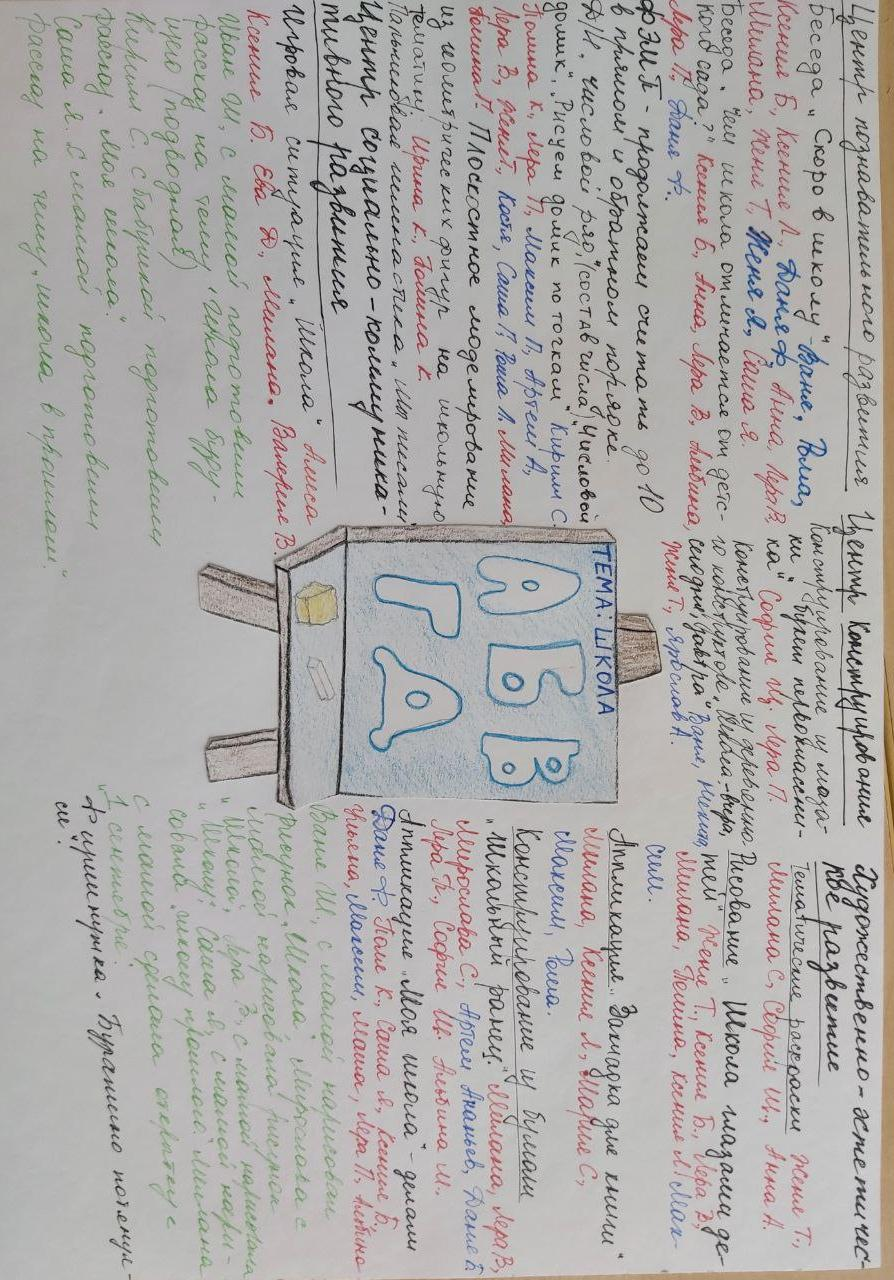 Центр познавательного развития
Беседа „Скоро в школу" Ваня, Рома,
Ксения Б, Ксения Л, Даня Ф, Анна, Лера В,
Милана, Женя Т, Женя Я, Саша Я.
Беседа „Чем школа отличается от детс-
кого сада?" Ксения Б, Анна, Лера В, Альбина,
Лера П, Даня Ф.
ФЭМП - продолжаем считать до 10
в прямом и обратном порядке.
Д/И „Числовой ряд", (состав числа) „Числовой
домик", „Рисуем домик по точкам" Кирилл С.
Полина К, Лера П, Максим П, Артем А,
Лера В, Женя Т, Костя, Саша П, Рома Л. Милана,
Полина П. Плоскостное моделирование
из геометрических фигур на школьную
тематику. Ирина К, Полина К.
Пальчиковая гимнастика „Мы писали"
Центр социально-коммуника-
тивного развития
Игровая ситуация „Школа" Алиса
Ксения Б. Ева Д, Милана, Валерия В.
Иван Ш, с мамой подготовили
рассказ на тему „Школа буду-
щего (подводная)
Кирилл С. с бабушкой подготовили
рассказ „Моя школа."
Саша Я. с мамой подготовили
рассказ на тему „Школа в прошлом."
Центр Конструирования
Конструирование из моза-
ки „Букет первоклассни-
ка" София Щ. Лера П.
Конструирование из деревянно-
го конструктора „Школа-вчера,
сегодня, завтра" Ваня, Никита,
Женя Т, Ярослав А.
ТЕМА: ШКОЛА
А Б В
Г Д
Художественно-эстетичес-
кое развитие
Тематические раскраски Женя Т.,
Милана С, София Щ., Анна А.
Рисование „Школа глазами де-
тей" Женя Т, Ксения Б., Лера В,
Милана, Полина, Ксения Л. Мак-
сим.
Аппликация „Закладка для книги"
Милана, Ксения Л, Мария С,
Максим, Рома.
Конструирование из бумаги
„Школьный ранец." Милана, Лера В,
Мирослава С, Артем Ананьев, Даня Б
Лера П, София Щ. Альбина М.
Аппликация „Моя школа" - делали
Даня Ф. Поля К, Саша Я, Ксения Б,
Ульяна, Максим, Маша, Лера П, Альбина
Ваня Ш, с мамой нарисовал
рисунок „Школа, Мирослава с
мамой нарисовала рисунок
„Школа", Лера В, с мамой нарисовала
„Школу", Саша Я, с мамой нари-
совала „Школу прошлого" Милана
с мамой сделала открытку с
„1 сентября".
Физминутка „Буратино потянул-
ся".